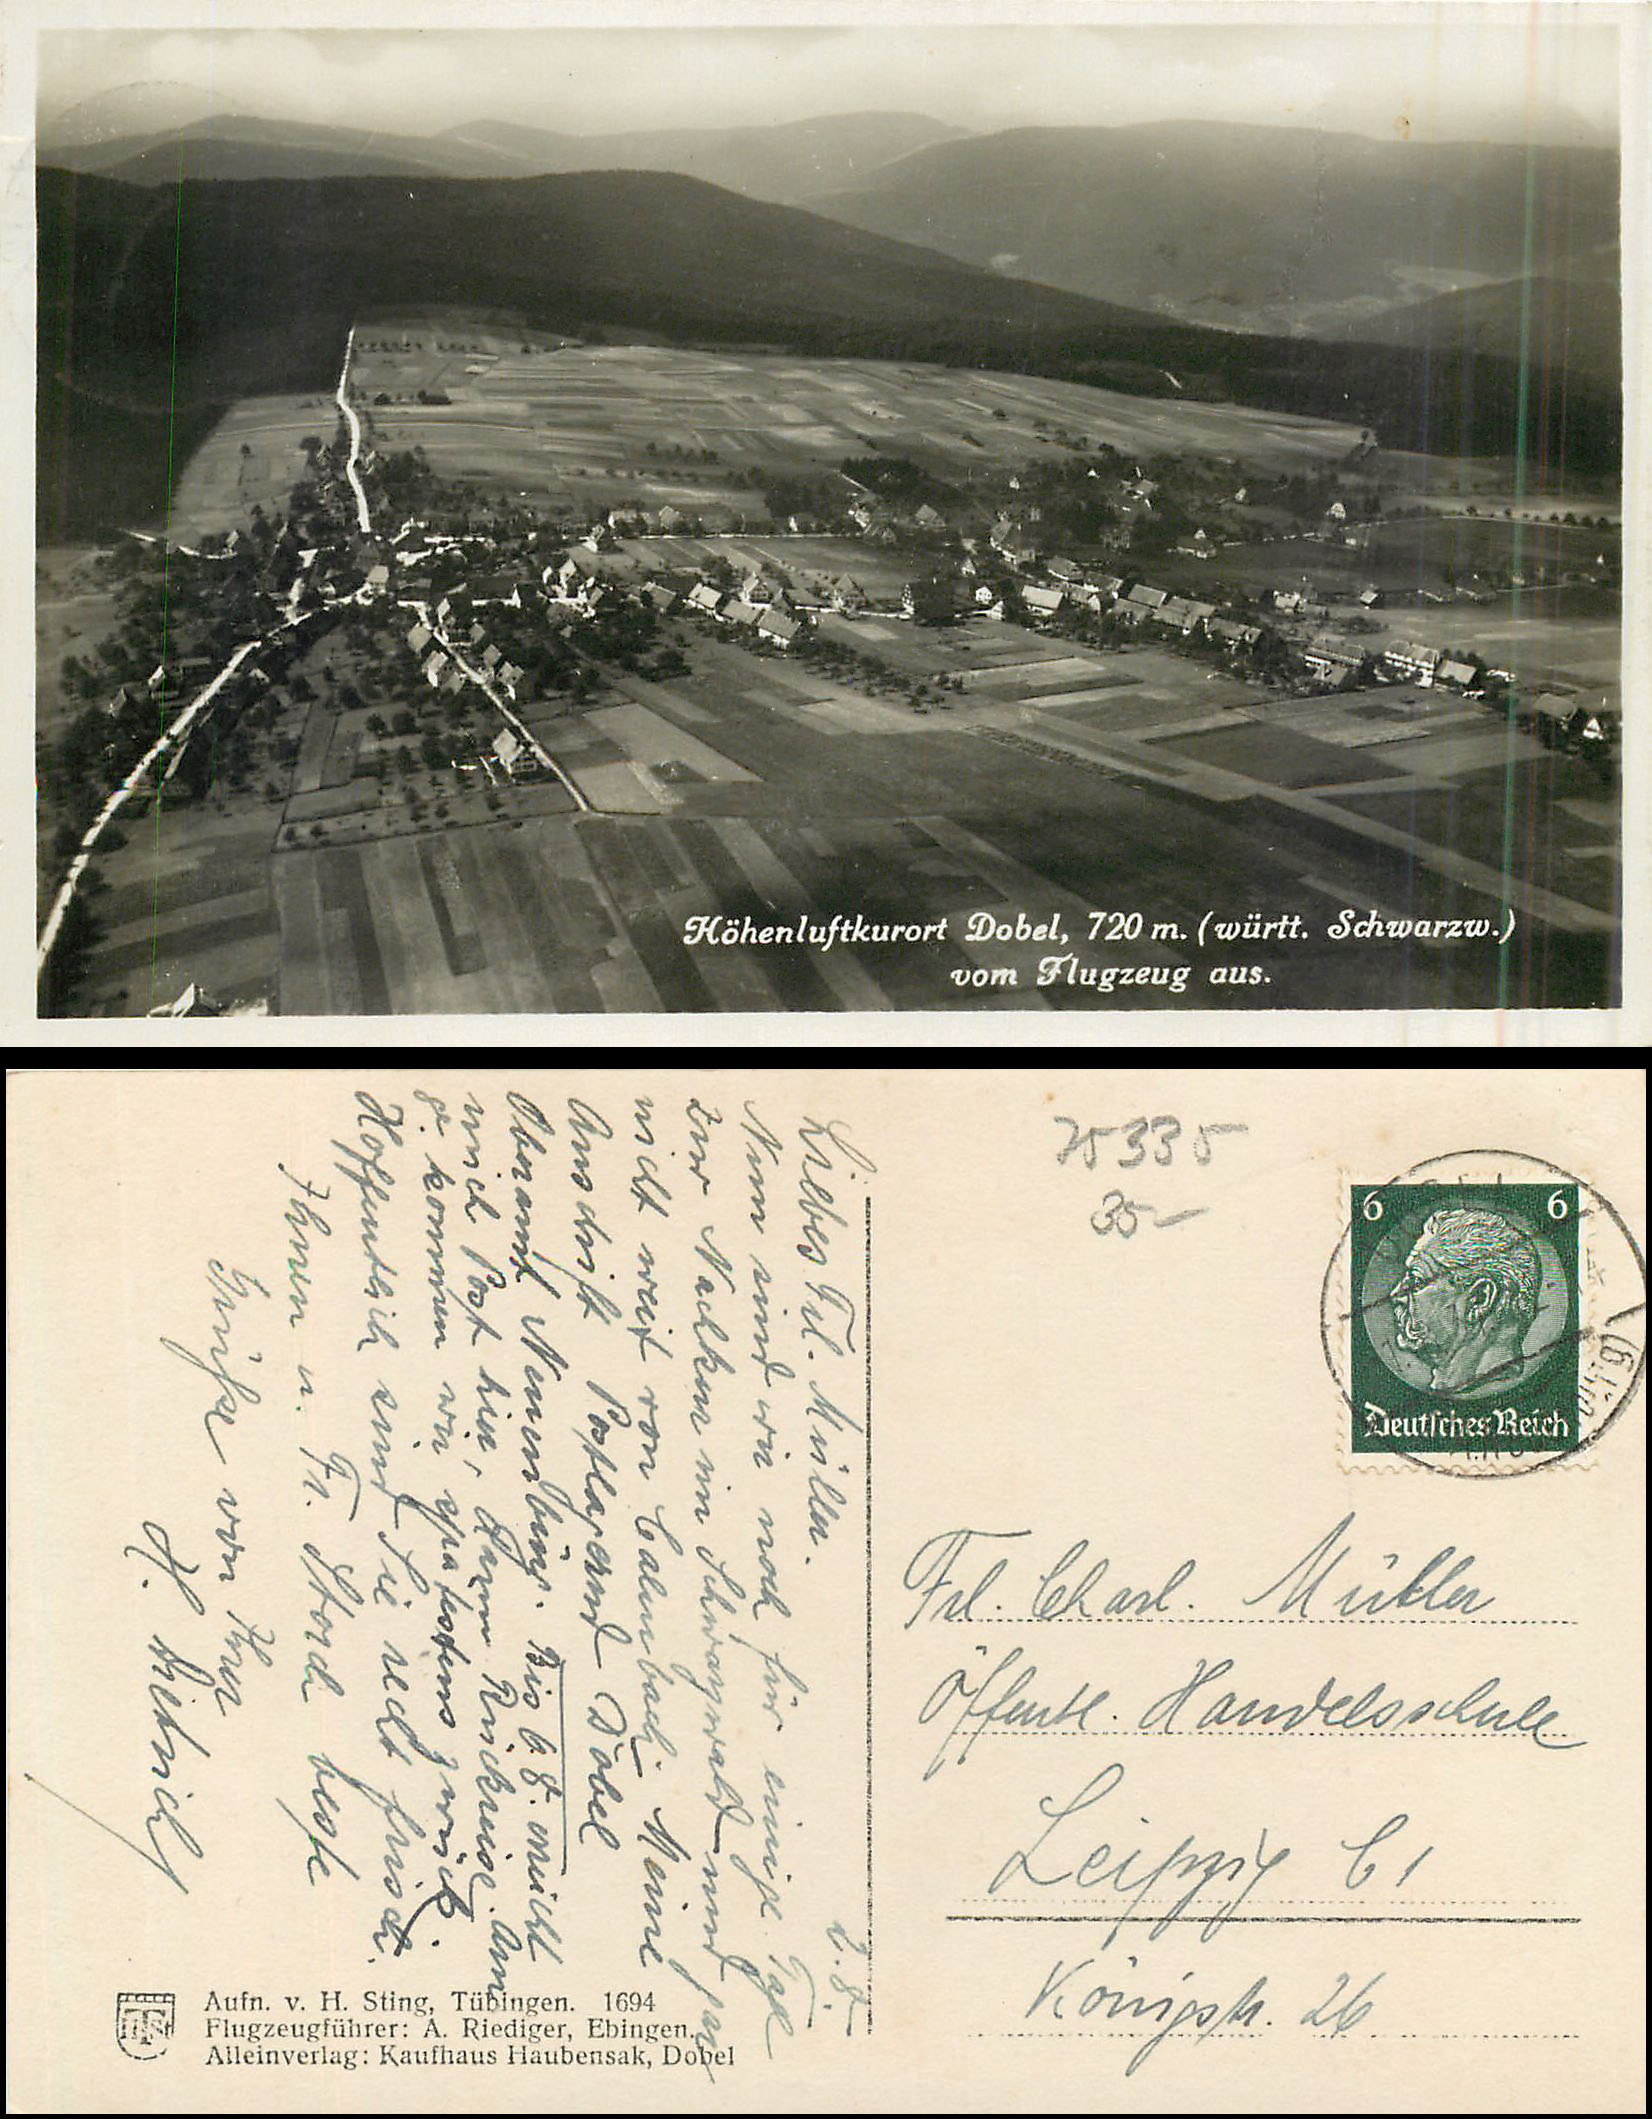 Höhenluftkurort Dobel, 720 m. (württ. Schwarzw.)
vom Flugzeug aus.
75335
35-
6 6
Deutsches Reich
2. 8.
Liebes Frl. Müller.
Nun sind wir noch für einige Tage
zur Nachkur im Schwarzwald und zwar
nicht weit von Calmbach. Meine
Anschrift Postlagernd Dobel
Oberamt Neuenbürg. Bis 6.8. erreicht
mich Post hier, dann Rückreise. Am
8. kommen wir spätestens zurück.
Hoffentlich sind Sie recht frisch.
Ihnen u. Frl. Storch beste
Grüße von Ihrer
H.
Frl. Charl. Müller
Öffentl. Handelsschule
Leipzig C1
Königstr. 26
Aufn. v. H. Sting, Tübingen. 1694
Flugzeugführer: A. Riediger, Ebingen.
Alleinverlag: Kaufhaus Haubensak, Dobel